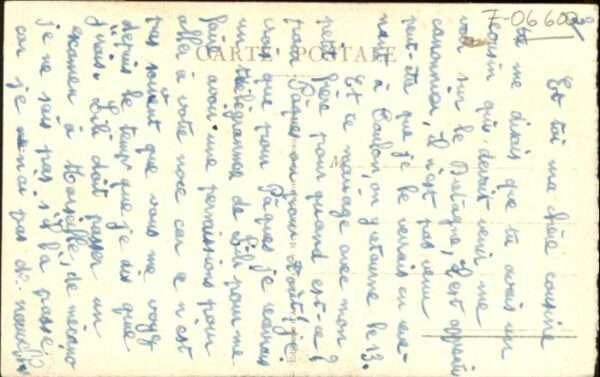 7-06602
CARTE POSTALE
Et toi ma chère cousine
tu me disais que tu avais un
cousin qui devait venir me
voir sur le Bretagne, il est apprenti
canonnier, il n'est pas venu
peut-être que je le verrais en
à Toulon, on y retourne le 13.
Et ce mariage avec mon
petit frère pour quand est-ce ?
pour Pâques ou pour Août ? je
crois que pour Pâques je recevrais
un télégramme de Lili pour me
faire avoir une permission pour
aller à votre noce car ce n'est
pas souvent que vous me voyez
depuis le temps que je dis que
j'irais. Lili doit passer un
examen à Marseille, de mécano
je ne sais pas s'il l'a passé
car je n'ai pas de nouvelles